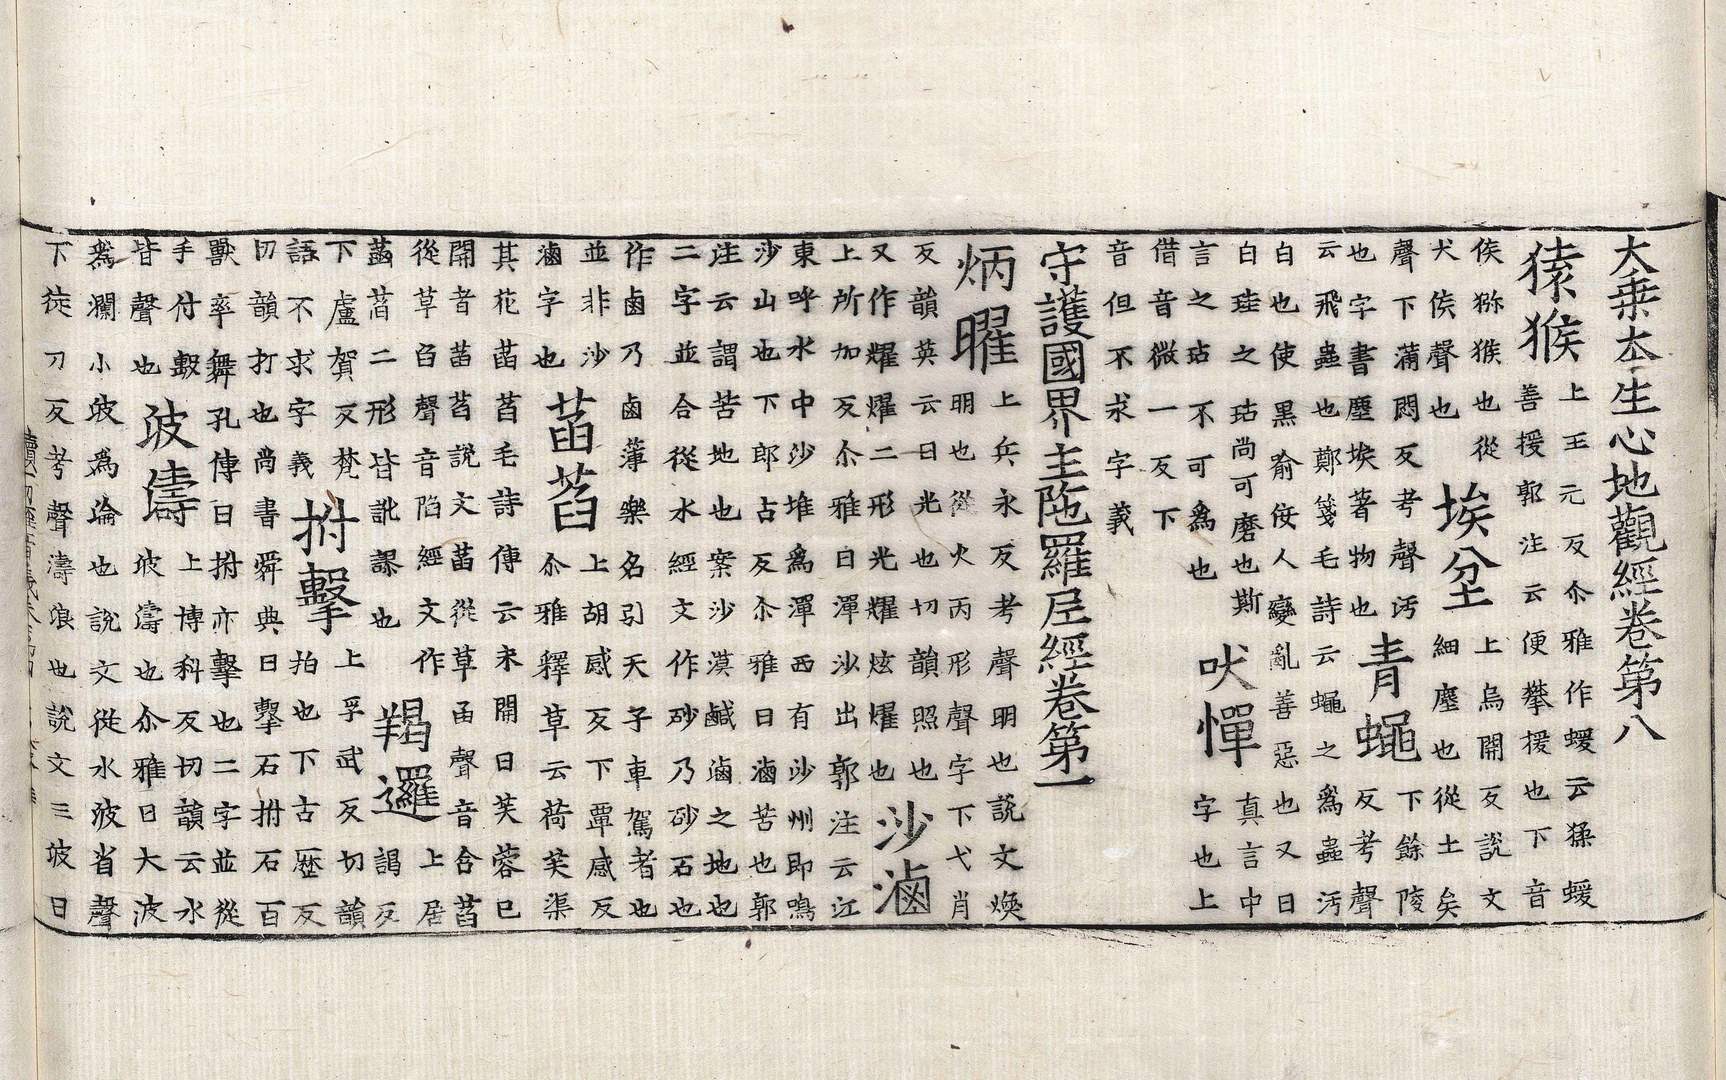 大乗本生心地觀經卷第八
猿猴
上王元反尒雅作蝯云猱蝯
善援郭注云便攀援也下音
侯猕猴也從
犬侯聲也
埃坌
上烏開反説文
細塵也從土矣
聲下蒲悶反考聲污
也字書塵埃著物也
青蠅
下餘陵
反考聲
云飛蟲也鄭箋毛詩云蠅之爲蟲污
白也使黒喻佞人變亂善惡也又曰
白珪之玷尚可磨也斯
言之玷不可爲也
吠憚
真言中
字也上
借音微一反下
音但不求字義
守護國界主陁羅尼經卷第一
炳曜
上兵永反考聲明也説文煥
明也從火丙形聲字下弋肖
反韻英云日光也切韻照也
又作燿耀二形光燿炫燿也
沙滷
上所加反尒雅曰潬沙出郭注云江
東呼水中沙堆爲潬西有沙州即鳴
沙山也下郎古反尒雅曰滷苦也郭
注云謂苦地也案沙漠鹹滷之地也
二字並合從水經文作砂乃砂石也
作鹵乃鹵薄樂名引天子車駕者也
並非沙
滷字也
菡萏
上胡感反下覃感反
尒雅釋草云荷芙渠
其花菡萏毛詩傳云未開曰芙蓉已
開者菡萏説文菡從草函聲音合萏
從草臽聲音陷經文作
菡萏二形皆訛謬也
羯邏
上居
謁反
下盧賀反梵
語不求字義
拊擊
上孚武反切韻
拍也下古歷反
切韻打也尚書舜典曰擊石拊石百
獸率舞孔傳曰拊亦擊也二字並從
手付毄
皆聲也
波濤
上博科反切韻云水
波濤也尒雅曰大波
爲瀾小波爲淪也説文從水波省聲
下徒刀反考聲濤浪也説文三波曰